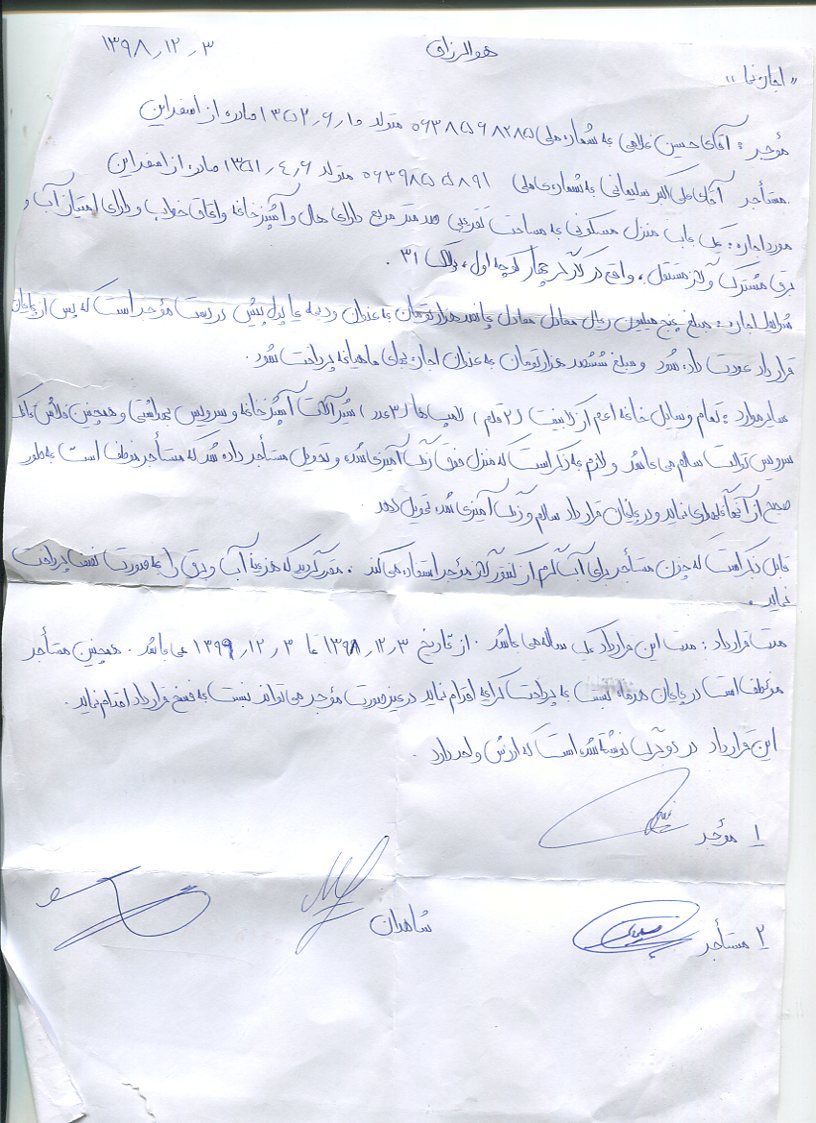 هوالرزاق
۱۳۹۸٫۱۲٫۳
" اجاره‌نامه "
مؤجر : آقای حسین غلامی به شماره ملی ۰۶۳۸۵۶۸۲۸۵ متولد ۱۳۵۲٫۶٫۱۰ صادره از اسفراین
مستأجر آقای علی اکبر سلیمانی به شماره‌ی ملی ۰۶۳۹۸۵۵۸۹۱ متولد ۱۳۵۱٫۴٫۶ صادره از اسفراین
مورد اجاره : یک باب منزل مسکونی به مساحت تقریبی صد متر مربع دارای هال و آشپزخانه و اتاق خواب و دارای امتیاز آب و
برق مشترک و گاز مستقل ، واقع در گلزار چهار کوچه اول ، پلاک ۳۱ .
شرایط اجاره : مبلغ پنج میلیون ریال معادل پانصد هزار تومان به عنوان ودیعه یا پول پیش در دست مؤجر است که پس از پایان
قرارداد عودت داده شود و مبلغ ششصد هزار تومان به عنوان اجاره بهای ماهیانه پرداخت شود .
سایر موارد : تمام وسایل خانه اعم از کابینت (۲ قلم) لامپ ها (۳ عدد) شیرآلات آشپزخانه و سرویس بهداشتی و همچنین فلاش تانک
سرویس توالت سالم می باشد و لازم به ذکر است که منزل فوق رنگ آمیزی شده و تحویل مستأجر داده شد که مستأجر موظف است به طور
صحیح از آنها نگهداری نماید و در پایان قرارداد سالم و رنگ آمیزی شده تحویل دهد .
قابل ذکر است که چون مستأجر برای آب گرم از کنتور گاز مؤجر استفاده می کند . مقرر گردید که هزینه آب و برق را به صورت نصف پرداخت
نماید .
مدت قرارداد : مدت این قرارداد یک ساله می باشد . از تاریخ ۱۳۹۸٫۱۲٫۳ تا ۱۳۹۹٫۱۲٫۳ می باشد . همچنین مستأجر
مؤظف است در پایان هر ماه نسبت به پرداخت کرایه اقدام نماید در غیر صورت مؤجر می تواند نسبت به فسخ قرارداد اقدام نماید .
این قرارداد در دو برگ نوشته شده است که ارزش واحد دارد .
۱ مؤجر
۲ مستأجر
شاهدان